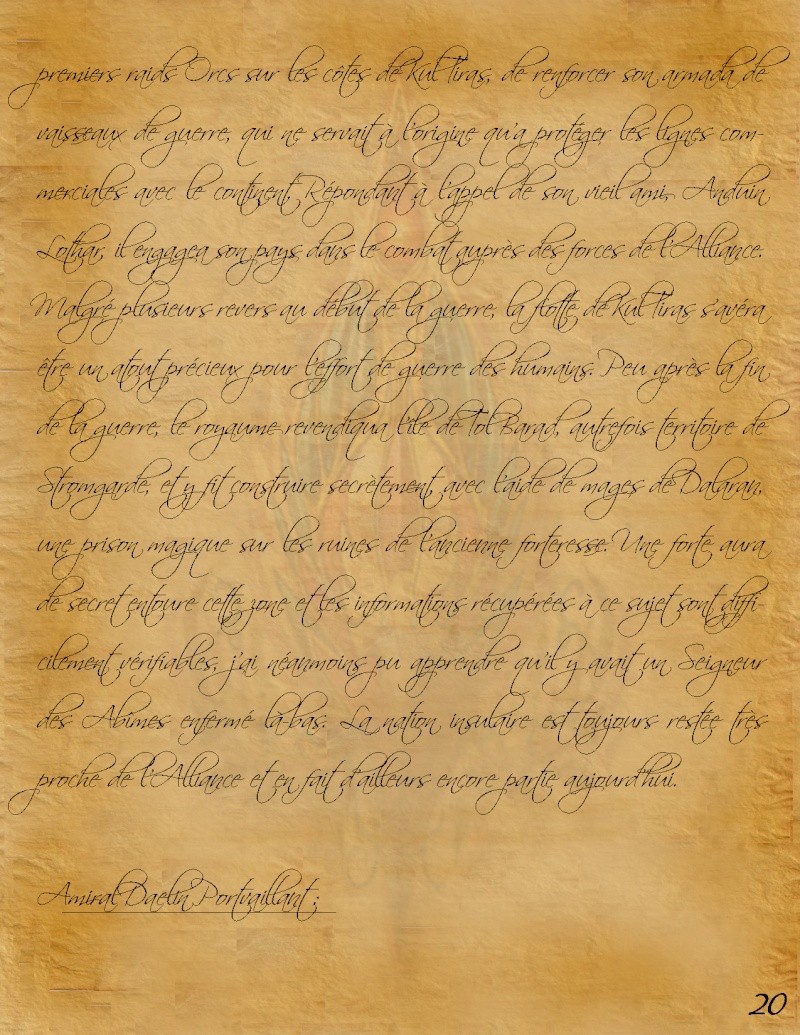 premiers raids Orcs sur les côtes de Kul Tiras, de renforcer son armada de
vaisseaux de guerre, qui ne servait à l'origine qu'a protéger les lignes com-
merciales avec le continent. Répondant à l'appel de son vieil ami, Anduin
Lothar, il engagea son pays dans le combat auprès des forces de l'Alliance.
Malgré plusieurs revers au début de la guerre, la flotte de Kul Tiras s'avéra
être un atout précieux pour l'effort de guerre des humains. Peu après la fin
de la guerre, le royaume revendiqua l'île de Tol Barad, autrefois territoire de
Stromgarde, et y fit construire secrètement, avec l'aide de mages de Dalaran,
une prison magique sur les ruines de l'ancienne forteresse. Une forte aura
de secret entoure cette zone et les informations récupérées à ce sujet sont diffi-
cilement vérifiables, j'ai néanmoins pu apprendre qu'il y avait un Seigneur
des Abîmes enfermé là-bas. La nation insulaire est toujours restée très
proche de l'Alliance et en fait d'ailleurs encore partie aujourd'hui.
Amiral Daelin Portvaillant :
20